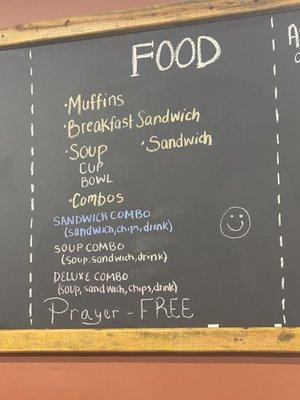 FOOD
·Muffins
·Breakfast Sandwich
·Soup ·Sandwich
CUP
BOWL
·Combos
SANDWICH COMBO
(sandwich, chips, drink)
SOUP COMBO
(soup, sandwich, drink)
DELUXE COMBO
(soup, sandwich, chips, drink)
Prayer - FREE